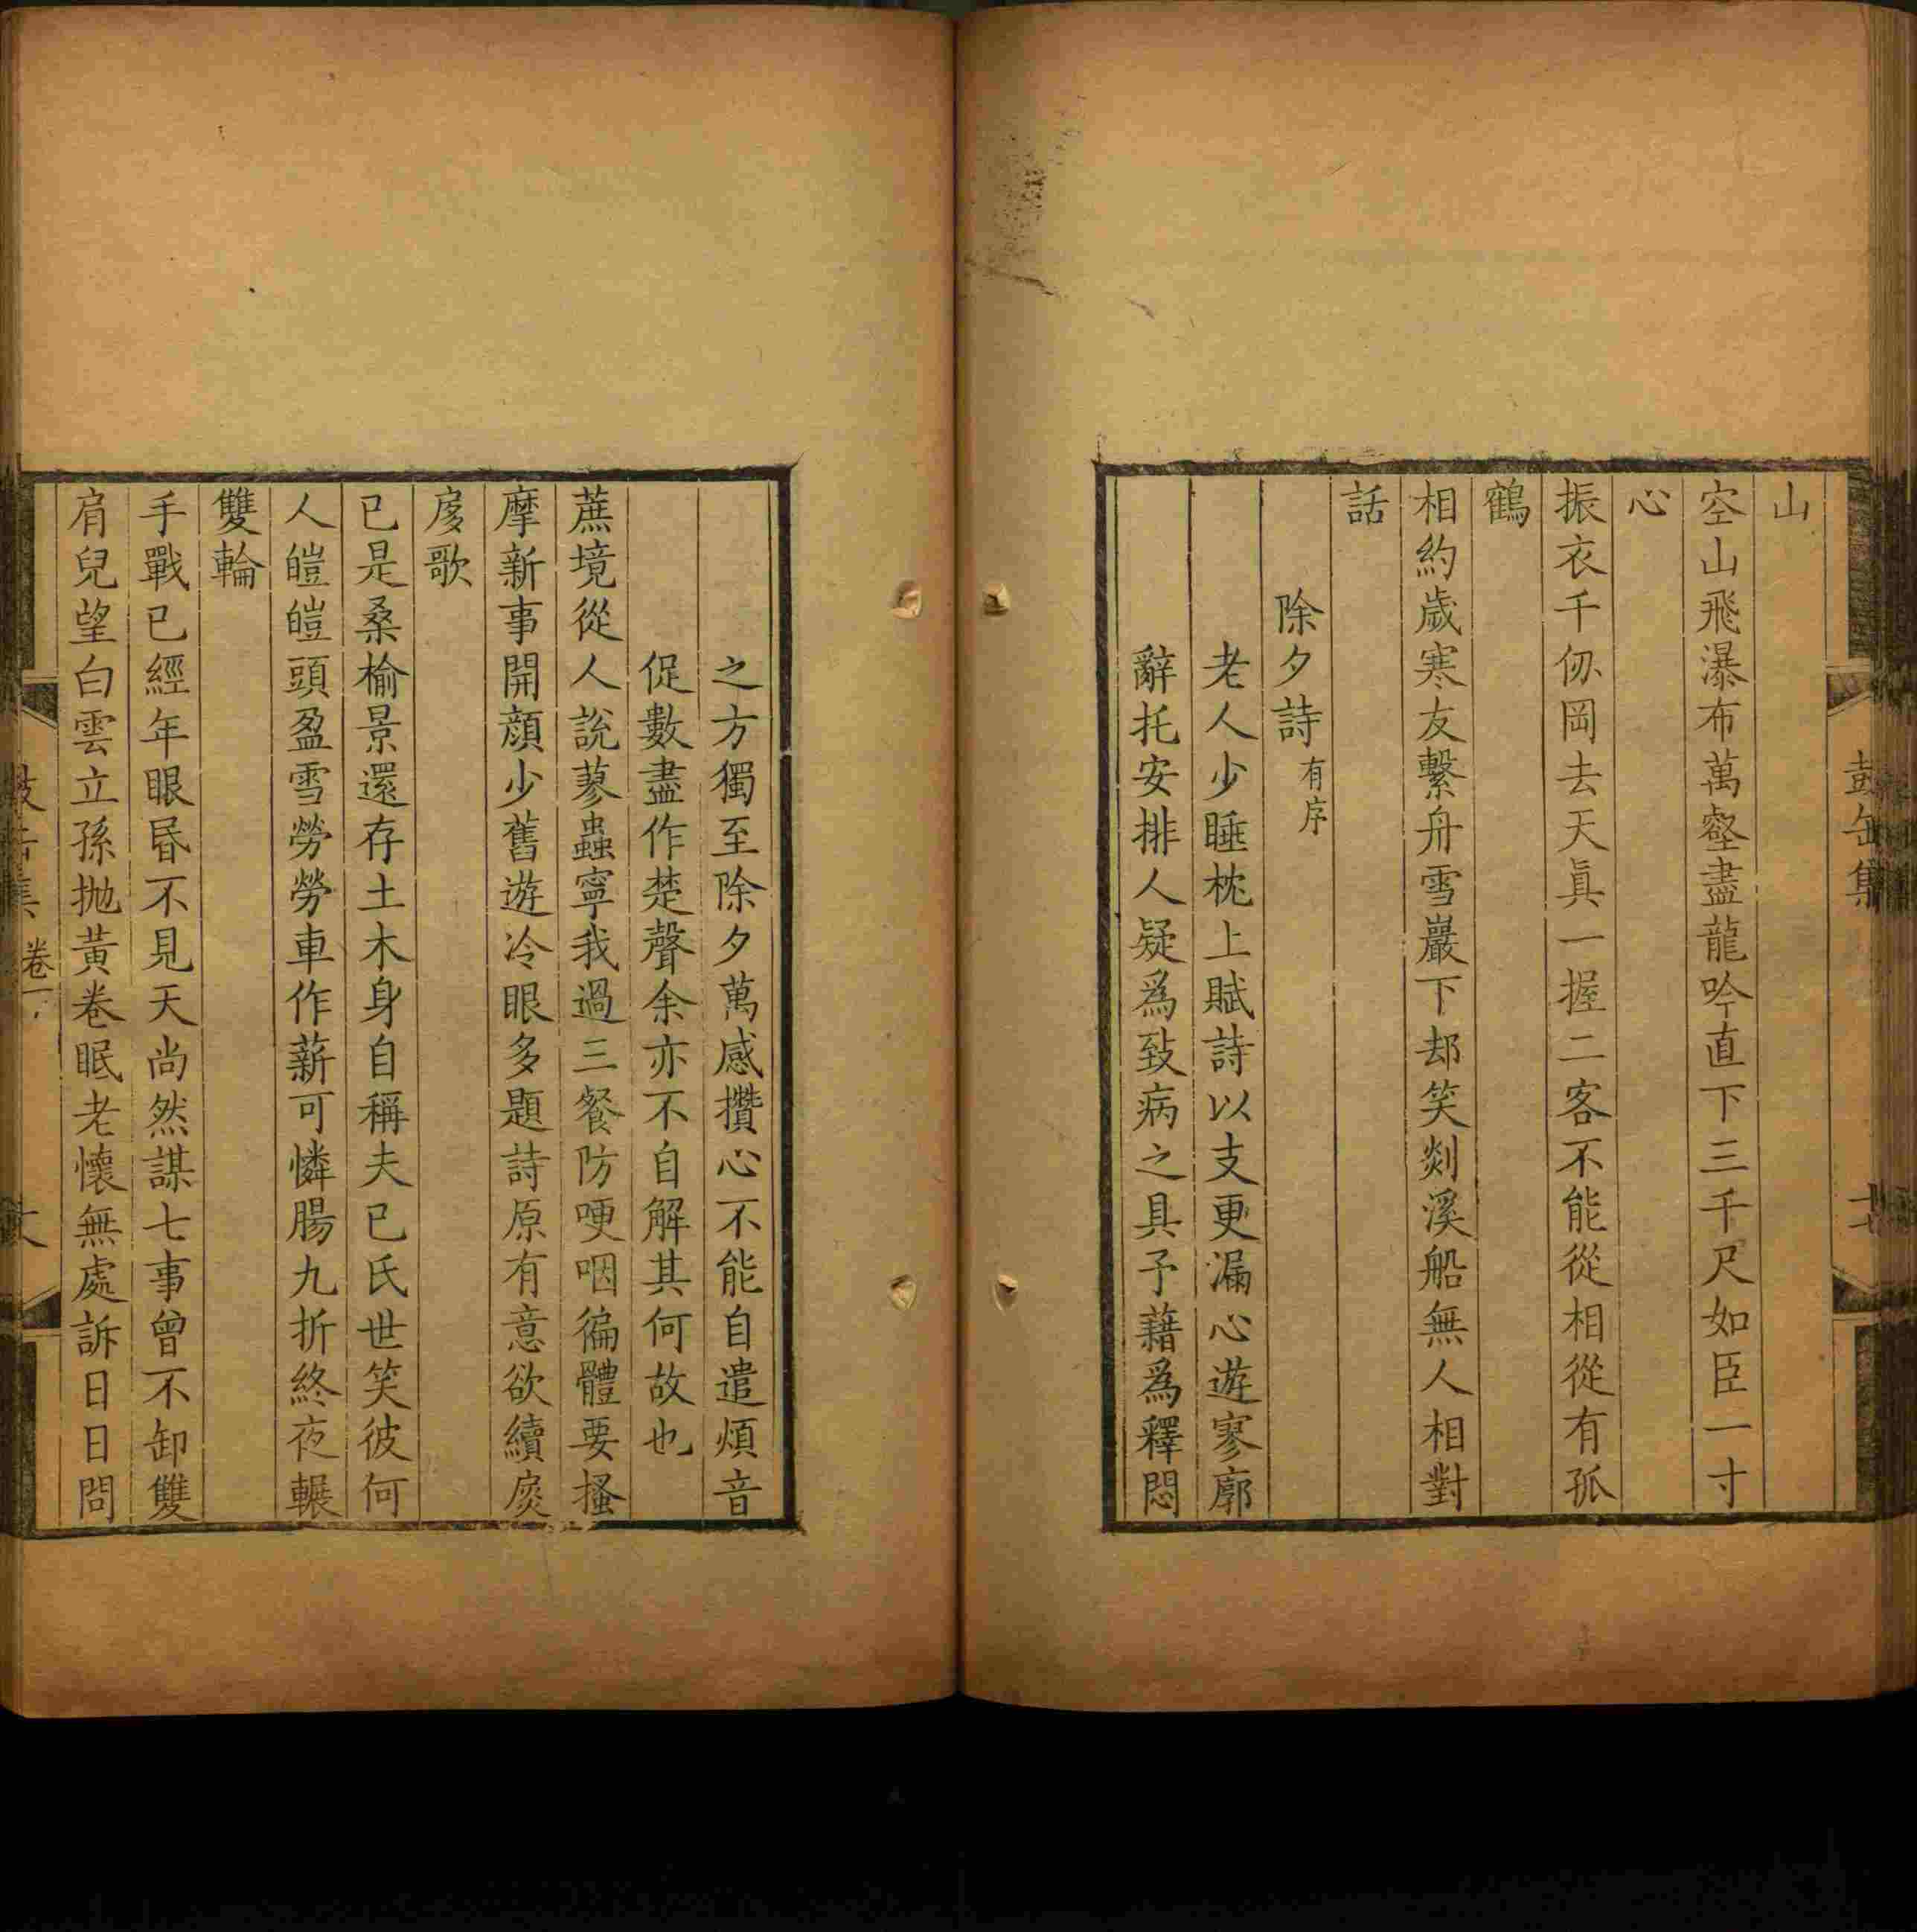 鼓缶集
山
空山飛瀑布萬壑盡龍吟直下三千尺如臣一寸
心
振衣千仞岡去天眞一握二客不能從相從有孤
鶴
相約歲寒友繫舟雪巖下却笑剡溪船無人相對
話
除夕詩有序
老人少睡枕上賦詩以支更漏心遊寥廓
辭托安排人疑爲致病之具予藉爲釋悶
之方獨至除夕萬感攢心不能自遣煩音
促數盡作楚聲余亦不自解其何故也
蔗境從人說蓼蟲寧我過三餐防哽咽徧體要搔
摩新事開顏少舊遊冷眼多題詩原有意欲續扊
扅歌
已是桑榆景還存土木身自稱夫已氏世笑彼何
人皚皚頭盈雪勞勞車作薪可憐腸九折終夜輾
雙輪
手戰已經年眼昏不見天尚然謀七事曾不卸雙
肩兒望白雲立孫抛黃卷眠老懷無處訴日日問
卷一